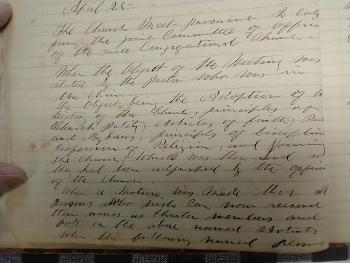 April 25
The Church Meet pursuant to call
from the joint Committee of
of the Congregational Church
When the Object of the Meeting was
stated by the Pastor who was in
the Chair
the Object being the Adoption of
history of the Church, principles of
Church Polity, Articles of faith,
and By laws, principles of discipline
profession of Religion, and
the Church, which was then read as
they had been adjusted by the
of the Church
When a Motion was Made that all
persons who wish can now record
their names as Charter members and
vote on the above named articles
when the following named persons